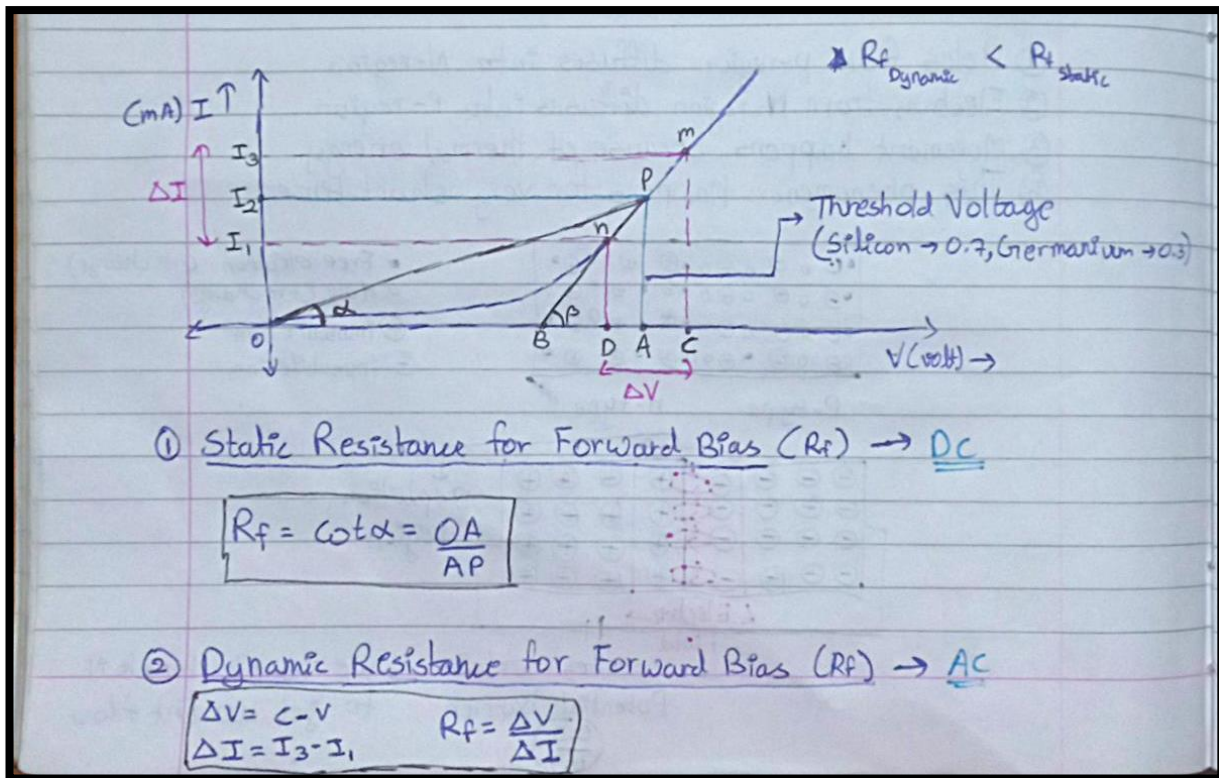 Rf Dynamic < Rf static
(mA) I ↑
I3
ΔI
I2
I1
m
P
n
α
β
→ Threshold Voltage
(Silicon → 0.7, Germanium → 0.3)
O
B
D
A
C
V(volt) →
ΔV
① Static Resistance for Forward Bias (Rf) → DC
Rf = cotα = OA
AP
② Dynamic Resistance for Forward Bias (Rf) → AC
ΔV = C-V
Rf = ΔV
ΔI = I3-I1
ΔI